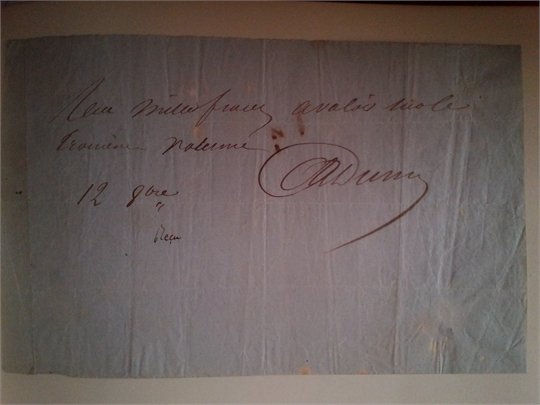 Reçu mille francs à valoir sur le
troisième volume
12 9bre
ADumas
Reçu